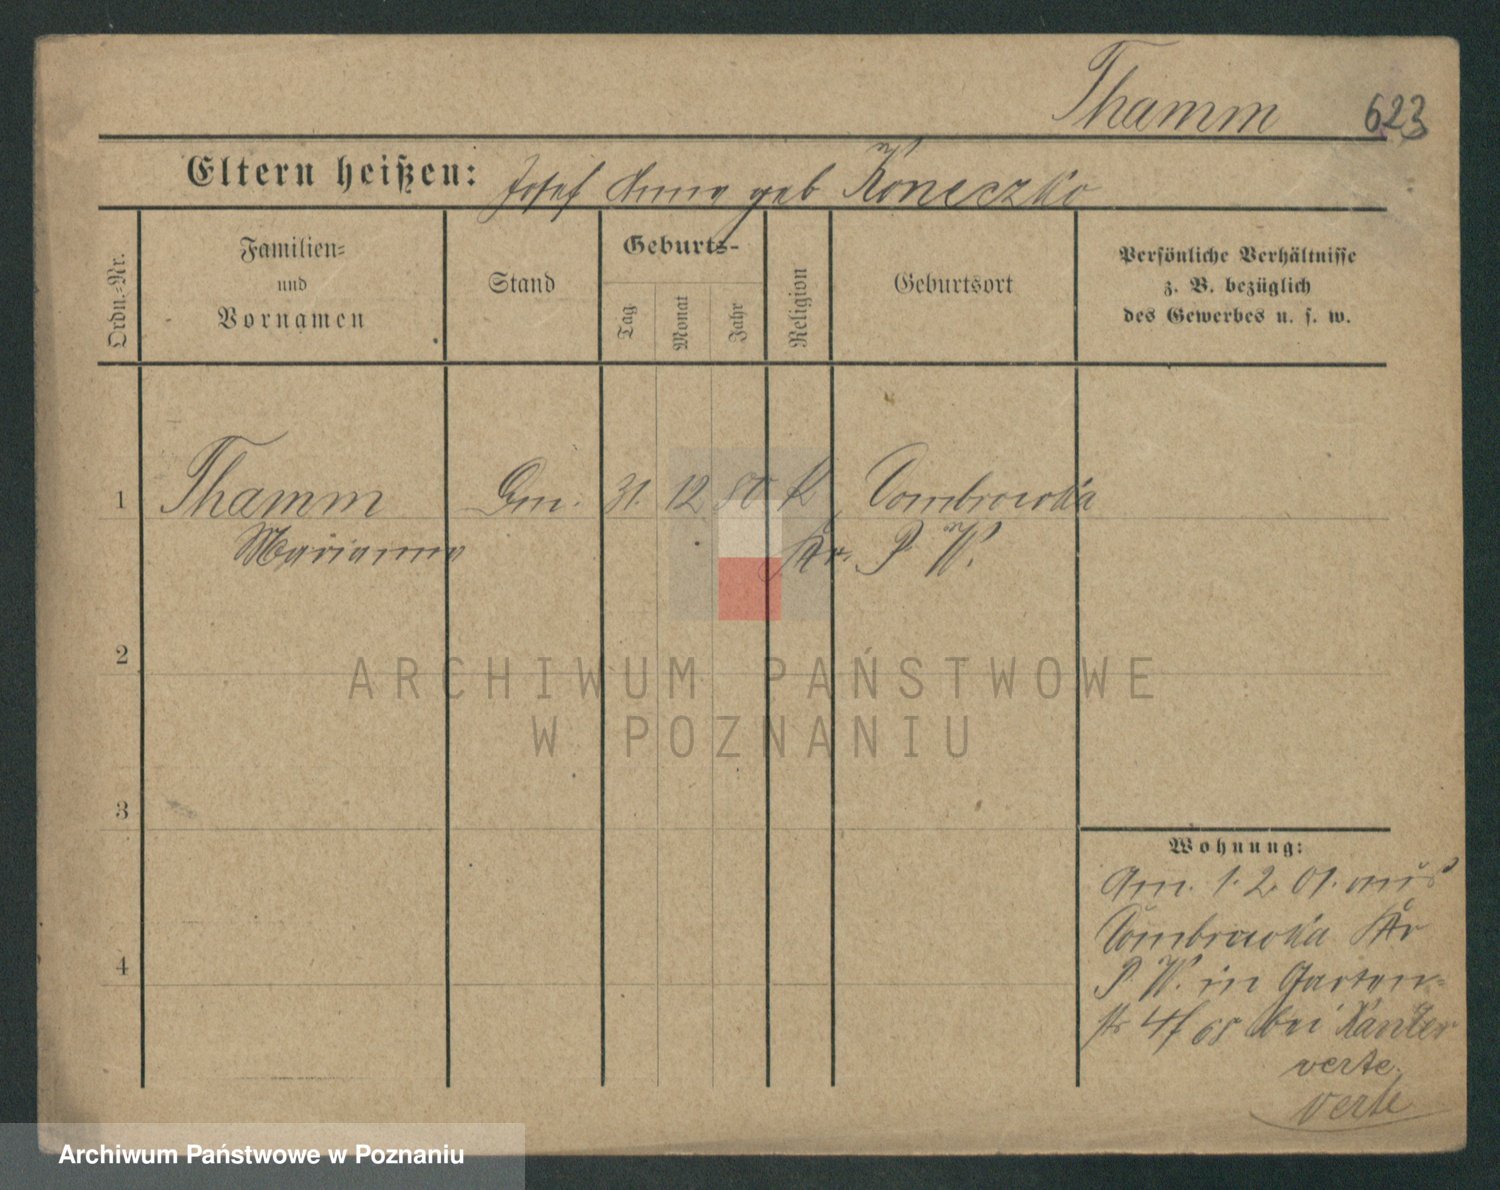 Thamm 623
Eltern heißen: Josef Anna geb Koneczka
Ordn.-Nr.
Familien-
und
Vornamen
Stand
Geburts-
Tag
Monat
Jahr
Religion
Geburtsort
Persönliche Verhältnisse
z. B. bezüglich
des Gewerbes u. s. w.
1 Thamm 31. 12 80 K Dombrowka
Marianna Kr. P. W.
2
3
4
Wohnung:
Am. 1. 2. 01. aus
Dombrowka Kr
P. W. in Garten-
str bei Kantor
verte.
verte
ARCHIWUM PAŃSTWOWE
W POZNANIU
Archiwum Państwowe w Poznaniu